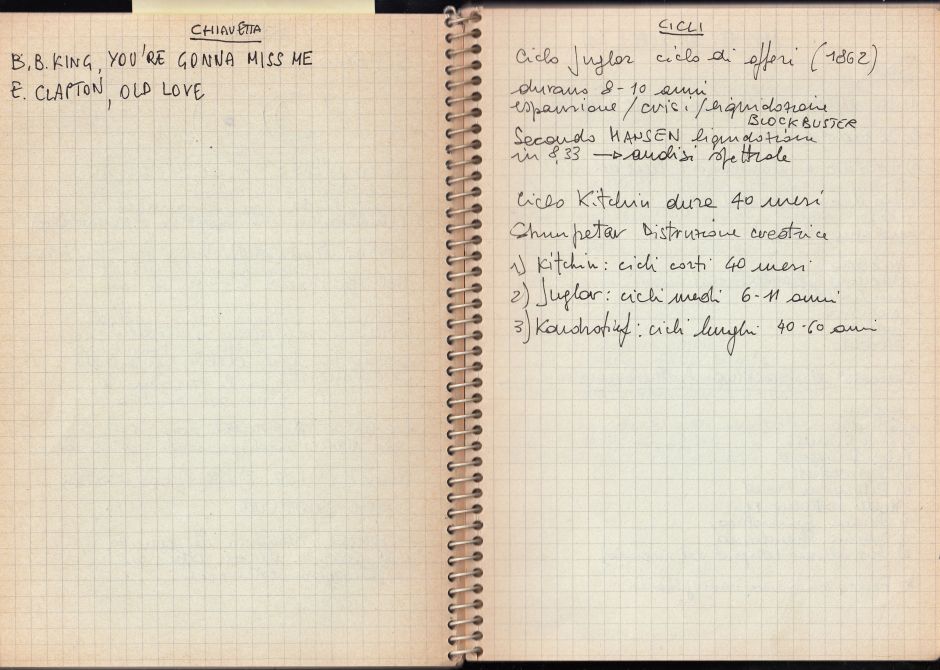 CHIAVETTA
B.B. KING, YOU'RE GONNA MISS ME
E. CLAPTON, OLD LOVE
CICLI
Ciclo Juglar ciclo di affari (1862)
durano 8-10 anni
espansione/crisi/liquidazione
BLOCKBUSTER
Secondo HANSEN liquidazione
in 8,33 → analisi spettrale
Ciclo Kitchin dura 40 mesi
Shumpeter Distruzione creatrice
1) Kitchin: cicli corti 40 mesi
2) Juglar: cicli medi 6-11 anni
3) Kondratief: cicli lunghi 40-60 anni